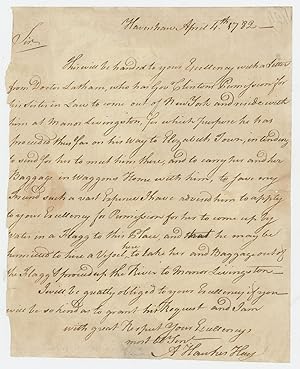 Haverstraw April 4th 1782 —
Sir
This will be handed to your Excellency with a Letter
from Doctor Latham, who has Govr Clinton's Permission for
his Sister in Law to come out of New York and reside with
him at Manor Livingston, for which purpose he has
proceeded thus far on his way to Elizabeth Town, intending
to send for her to meet him there, and to carry her and her
Baggage in Waggons Home with him, to save my
Friend such a vast Expence I have advised him to apply
to your Excellency for Permission for her to come up by
Water in a Flagg to this Place, and that he may be
permitted to hire a Vessel here, to take her and Baggage out of
the Flagg & proceed up the River to Manor Livingston —
I will be greatly obliged to your Excellency if you
will be so kind as to grant his Request and I am
with great Respect Your Excellency's
most Obt Servt
A. Hawkes Hay